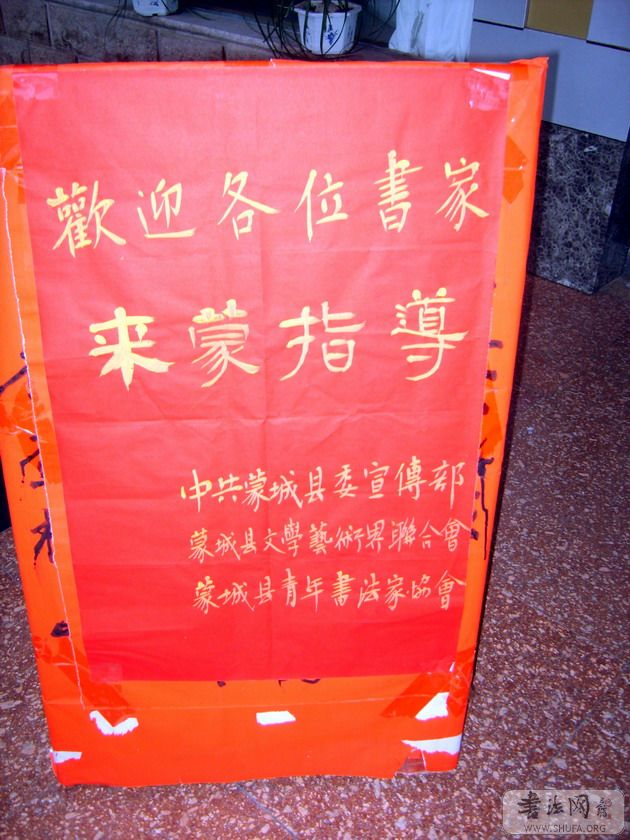 歡迎各位書家
来蒙指導
中共蒙城县委宣傳部
蒙城县文學藝術界聯合會
蒙城县青年書法家協會
書法网
WWW.SHUFA.ORG